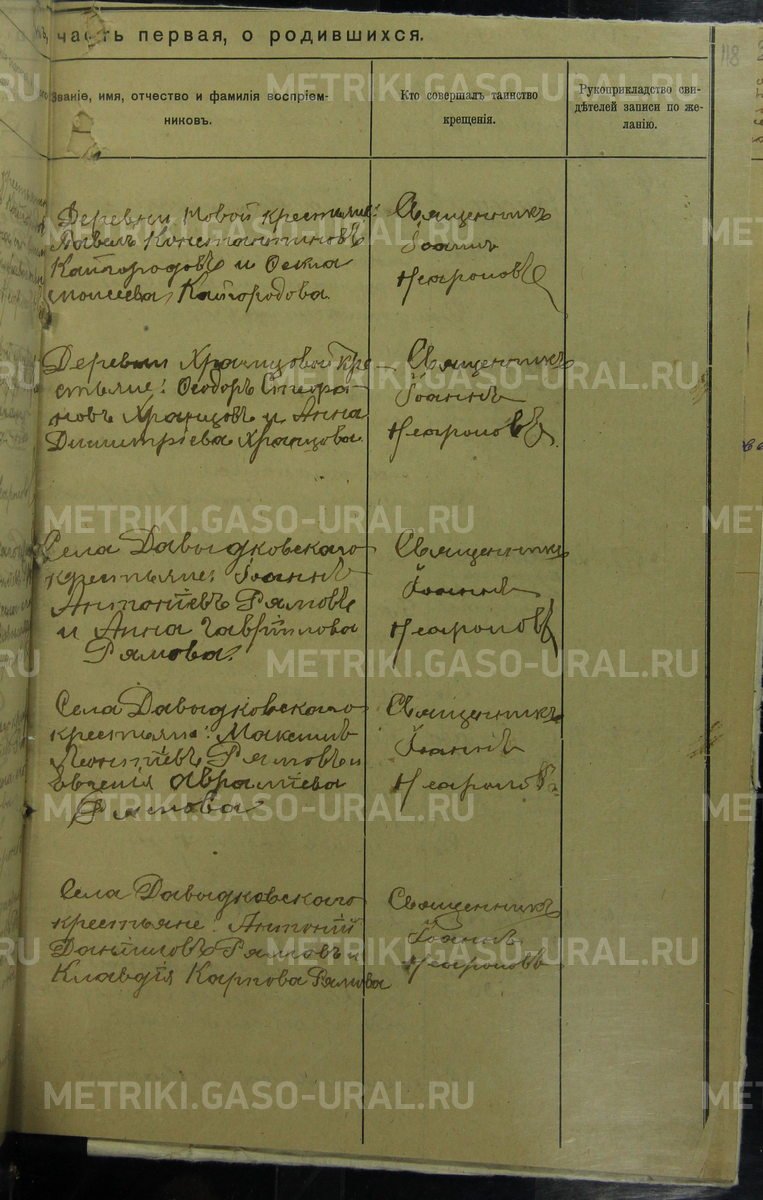 часть первая, о родившихся.
118
Званіе, имя, отчество и фамилія воспріем-
никовъ.
Кто совершалъ таинство
крещенія.
Рукоприкладство сви-
дѣтелей записи по же-
ланію.
Деревни Новой крестьяне:
Павелъ Константиновъ
Кайгородовъ и Ѳекла
Моисеева Кайгородова
Священникъ
Іоаннъ
Неароновъ
Деревни Храмцовой кре-
стьяне: Ѳеодоръ Стефа-
новъ Храмцовъ и Анна
Димитріева Храмцова
Священникъ
Іоаннъ
Неароновъ
Села Давыдковскаго
крестьяне: Іоаннъ
Антоніевъ Рямовъ
и Анна Гавріилова
Рямова.
Священникъ
Іоаннъ
Неароновъ
Села Давыдковскаго
крестьяне: Максимъ
Леонтіевъ Рямовъ и
Евгенія Авраміева
Рямова
Священникъ
Іоаннъ
Неароновъ
Села Давыдковскаго
крестьяне: Антоній
Даніиловъ Рямовъ и
Клавдія Карпова Рямова
Священникъ
Іоаннъ
Неароновъ
METRIKI.GASO-URAL.RU